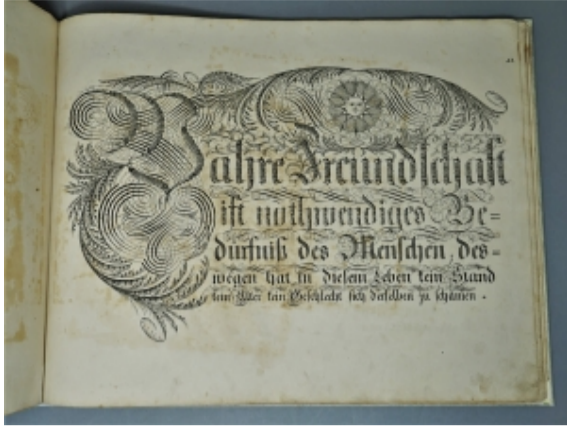 Wahre Freundschaft
ist nothwendiges Be=
dürfniß des Menschen, des=
wegen hat in diesem Leben kein Stand
kein Alter kein Geschlecht sich derselben zu schämen.